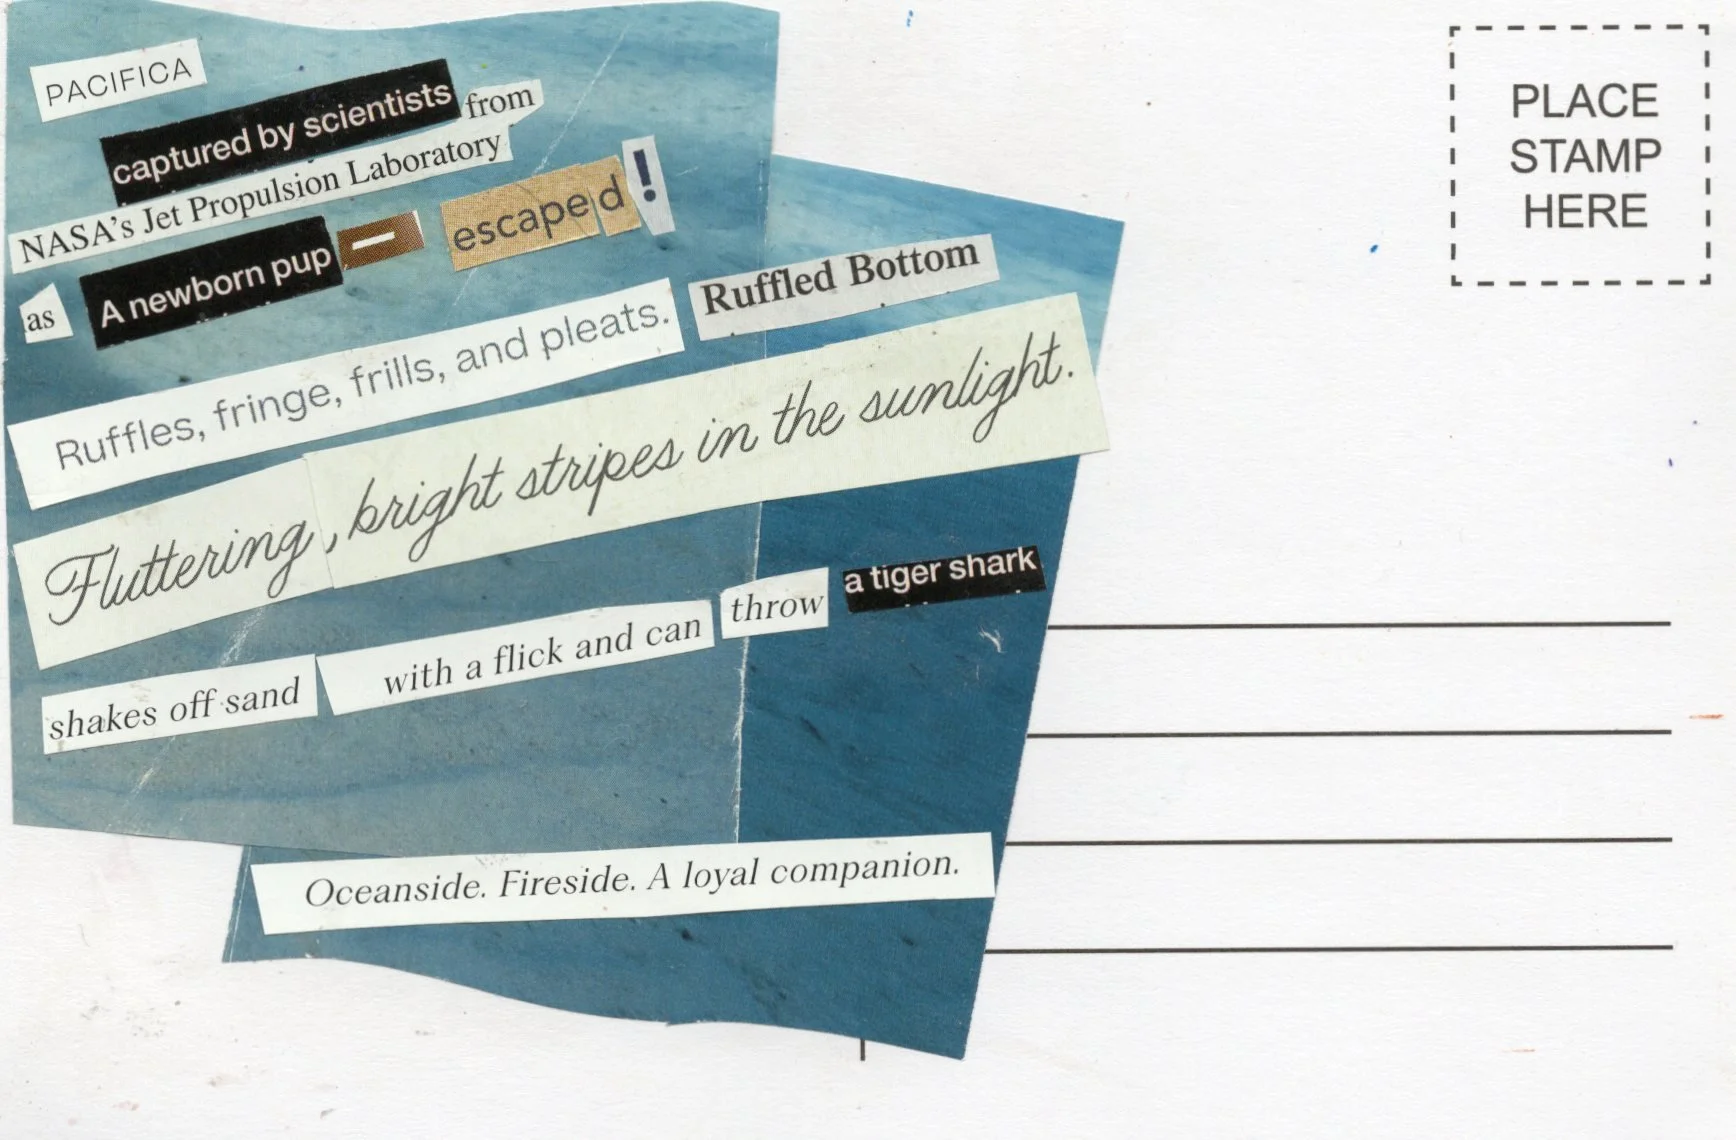 PACIFICA
captured by scientists from
NASA's Jet Propulsion Laboratory
as A newborn pup — escaped!
Ruffles, fringe, frills, and pleats. Ruffled Bottom
Fluttering, bright stripes in the sunlight.
shakes off sand with a flick and can throw a tiger shark
Oceanside. Fireside. A loyal companion.
PLACE
STAMP
HERE